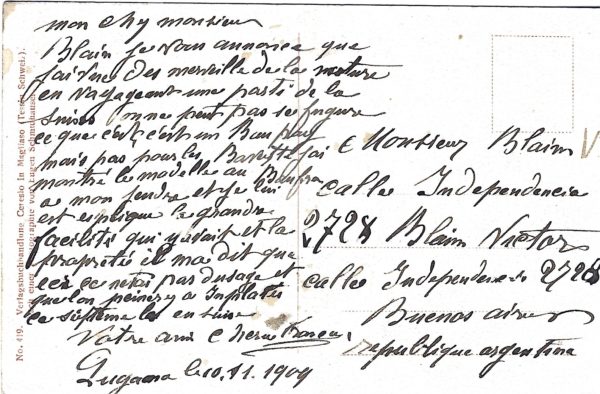 mon chy monsieur
Blain je vous annonce que
j'ai vue des merveille de la nature
en voyageant une partе de la
suisse on ne peut pas se figure
ce que c'est c'est un Beau pay
mais pas pour les
montré le modelle au
a mon jendre et je lui
est esplique la grandre
facilité qui y avait et la
propreté il ma dit que
ceci ce netai pas dusage et
que lon peinery a
ce septeme les en suisse
Votre ami
Lugano le 10.11.1909
Monsieur Blain
calle Independencia
2728 Blain Victor
calle Independencia 2728
Buenos aires
republique argentina
No. 419. Verlagsbuchhandlung Ceresio in Magliaso (Tessin Schweiz).